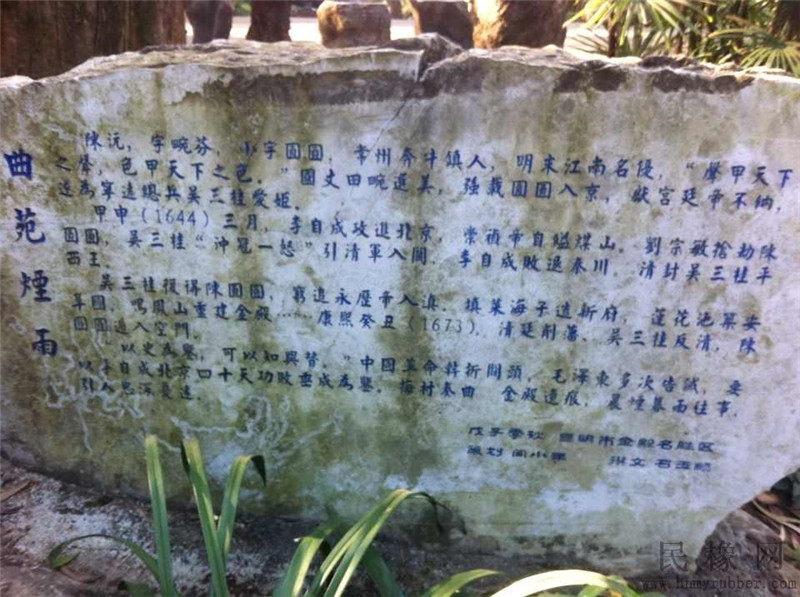 曲苑煙雨
陳沅，字畹芬，小字圓圓，常州奔牛鎮人，明末江南名優，“聲甲天下
之聲，色甲天下之色。”國丈田畹選美，強載圓圓入京，獻宮廷帝不納，
為寧遠總兵吳三桂愛姬。
甲申（1644）三月，李自成攻進北京，崇禎帝自縊煤山。劉宗敏搶劫陳
圓圓，吳三桂“沖冠一怒”引清軍入關，李自成敗退秦川，清封吳三桂平
西王。
吳三桂復得陳圓圓，窮追永歷帝入滇，填菜海子造新府，蓮花池築安
阜園，鳴鳳山重建金殿……康熙癸丑（1673），清廷削藩，吳三桂反清，陳
圓圓遁入空門。
“以史為鑒，可以知興替。”中國革命轉折關頭，毛澤東多次告誡，要
以李自成北京四十天功敗垂成為鑒。梅村奏曲，金殿遺痕，晨煙暮雨往事，
引人思深憂遠
戊子季秋 昆明市金殿名勝區
策划 小 撰文 石
民橡网
www.hmsyrubber.com